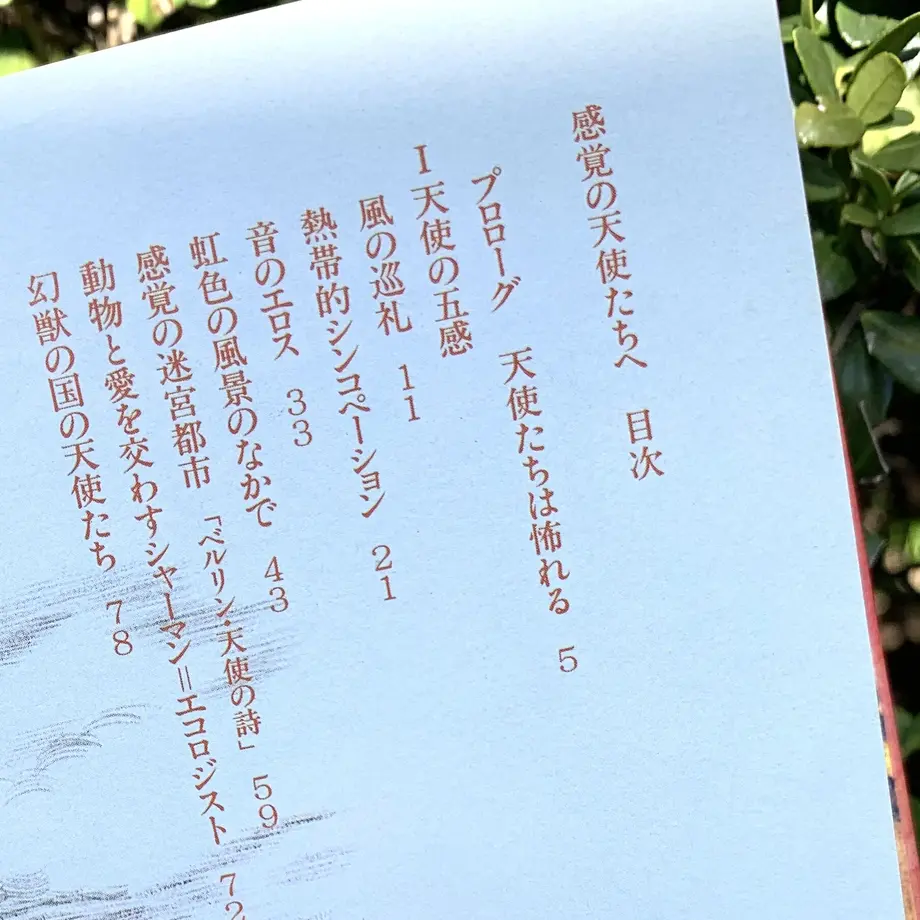 感覚の天使たちへ　目次
プロローグ　天使たちは怖れる　5
I 天使の五感
風の巡礼　11
熱帯的シンコペーション　21
音のエロス　33
虹色の風景のなかで　43
感覚の迷宮都市　「ベルリン・天使の詩」　59
動物と愛を交わすシャーマン＝エコロジスト　72
幻獣の国の天使たち　78